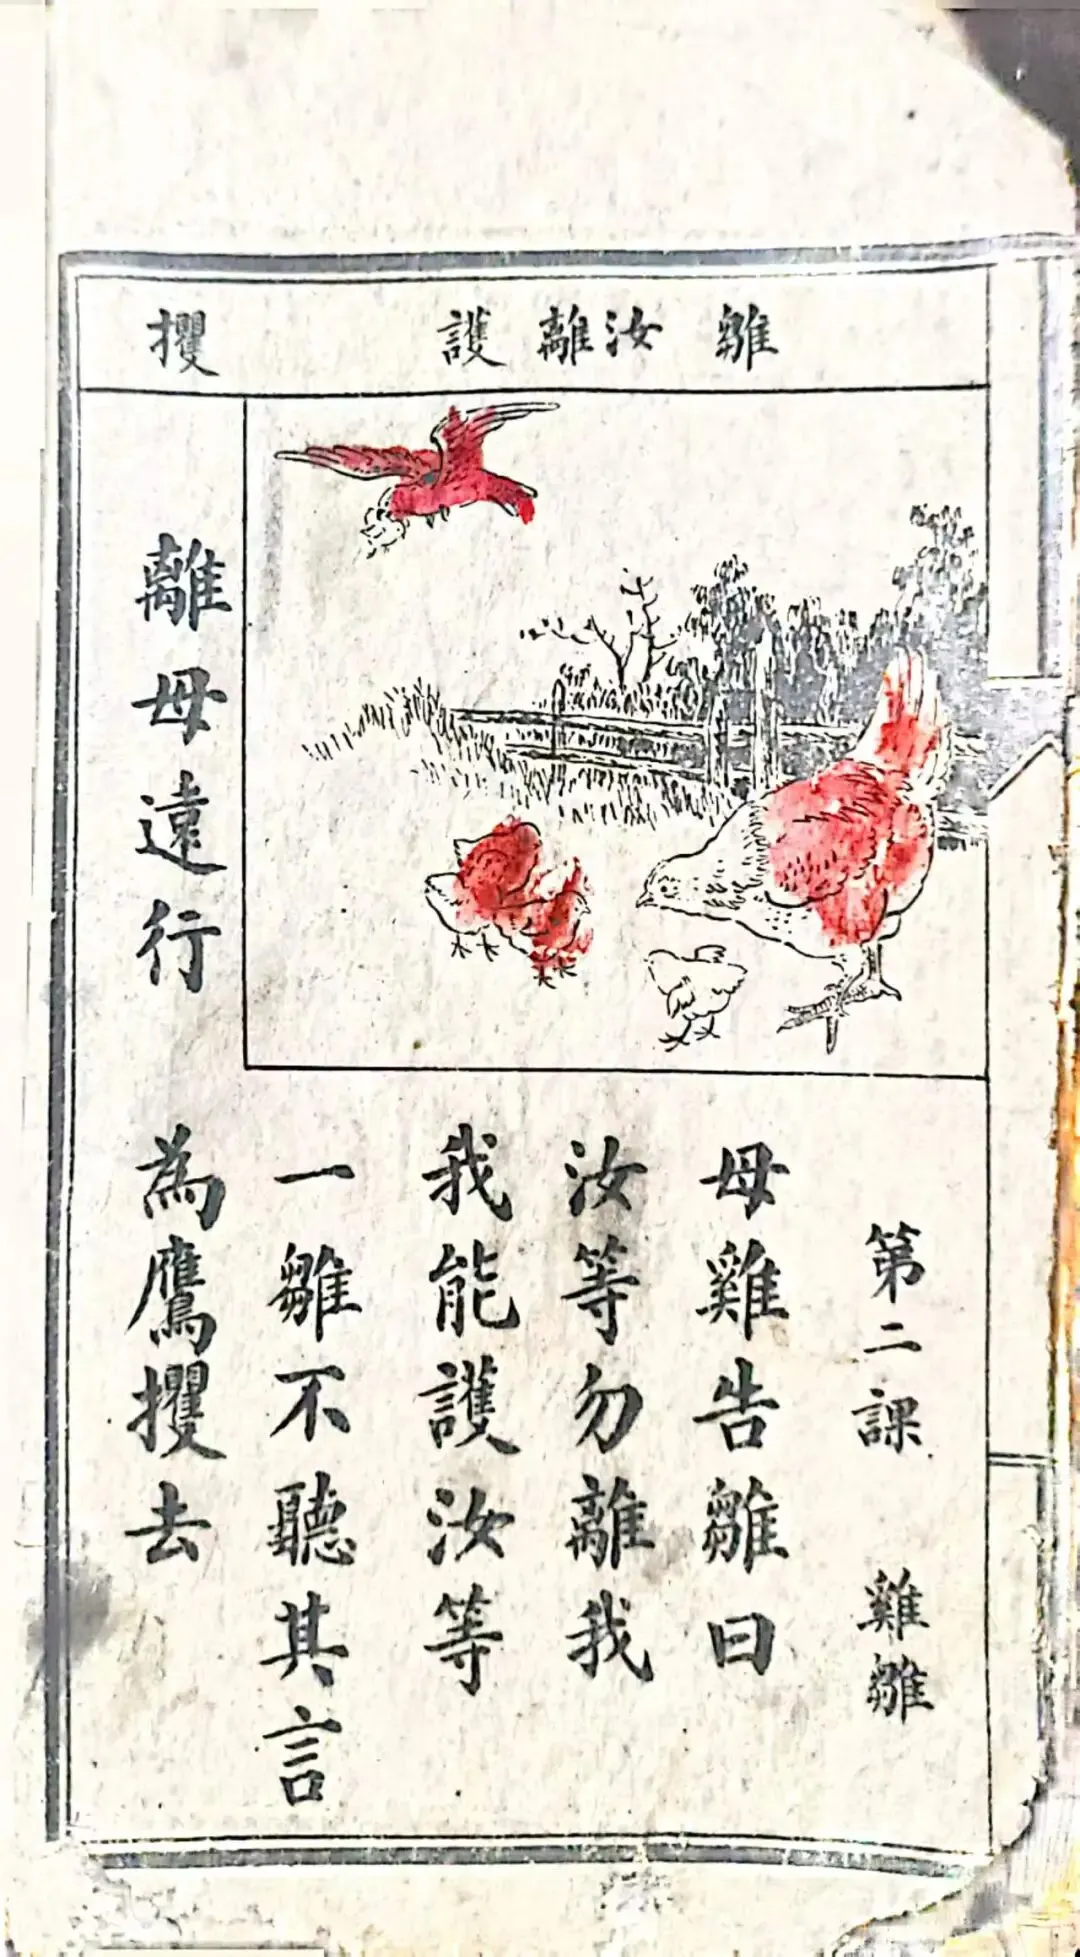 雛　汝離　護　攫
第二課　雞雛
母雞告雛曰
汝等勿離我
我能護汝等
一雛不聽其言
離母遠行　為鷹攫去